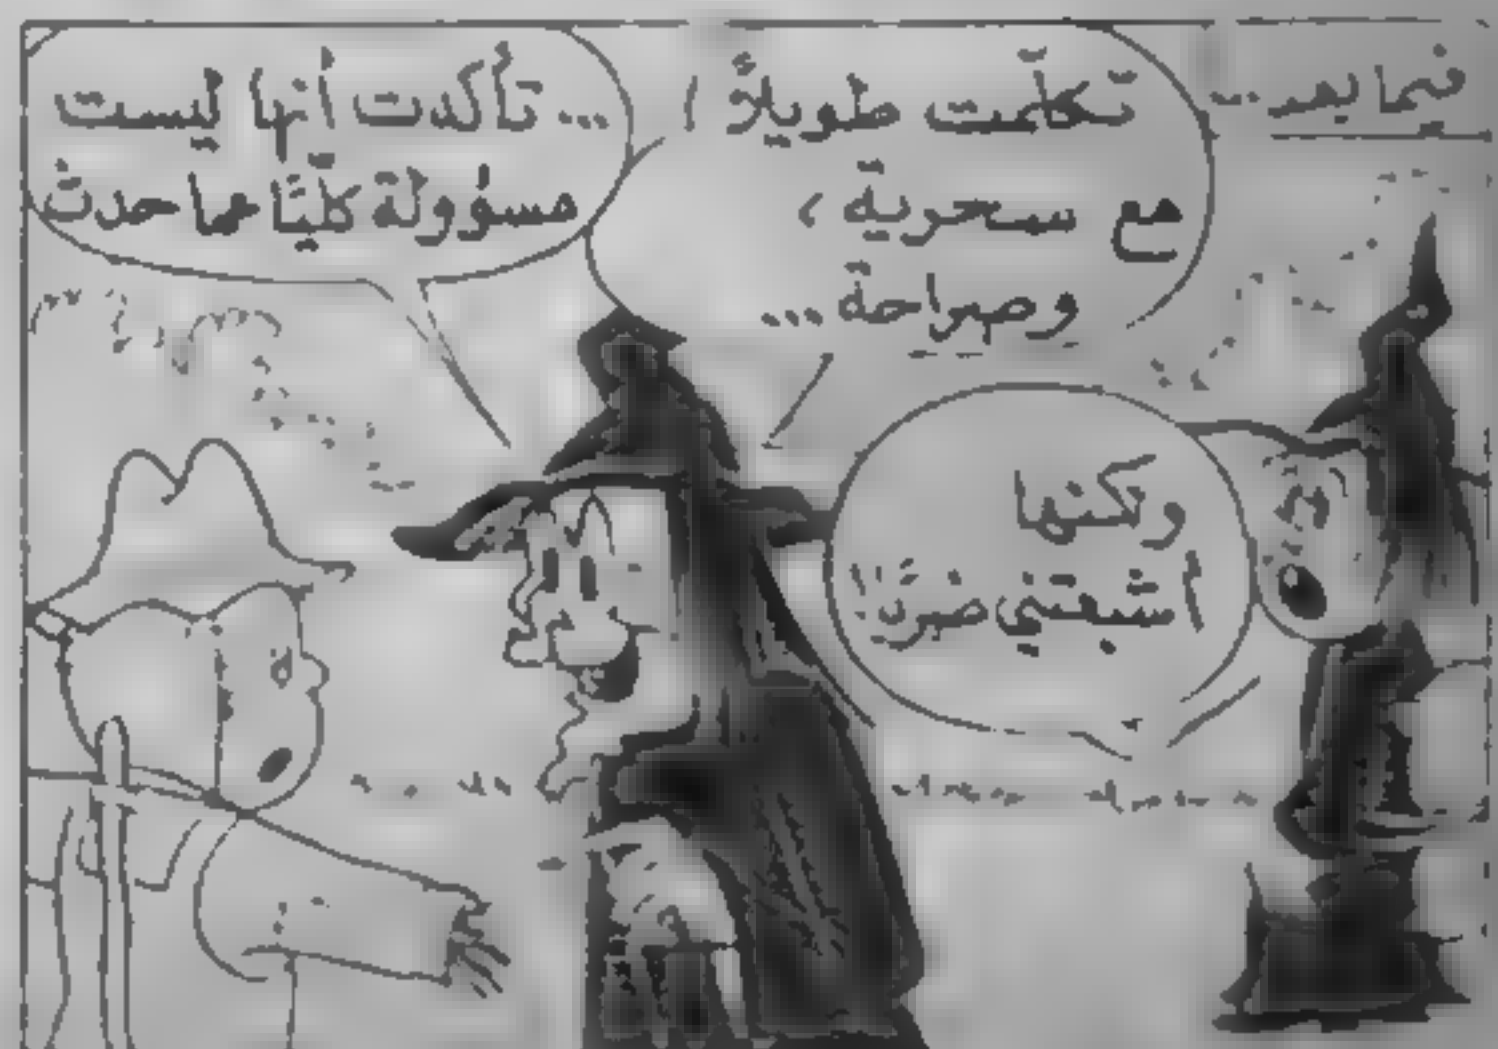 فيما بعد...
تكلّمت طويلاً
مع سحرية،
وصراحة...
... تأكدت أنها ليست
مسؤولة كليًّا عما حدث
ولكنها
أشبعتني ضربًا!